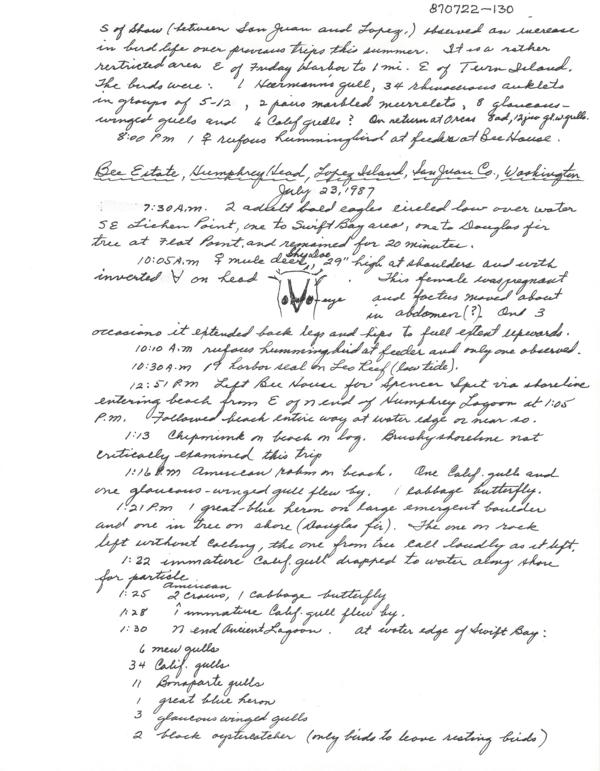 870722-130
S of Shaw (between San Juan and Lopez.) observed an increase
in bird life over previous trips this summer. It is a rather
restricted area E of Friday Harbor to 1 mi. E of Turn Island.
The birds were: 1 Heermann's gull, 34 rhinocerous auklets
in groups of 5-12, 2 pairs marbled murrelets, 8 glaucous-
winged gulls and 6 Calif gulls? On return at Orcas 8ad, 12juv gl.w gulls.
8:00 Pm 1 ♀ rufous hummingbird at feeder at Bee House.
Bee Estate, Humphrey Head, Lopez Island, San Juan Co., Washington
July 23, 1987
7:30 A.m. 2 adult bald eagles circled low over water
SE Lichen Point, one to Swift Bay area, one to Douglas fir
tree at Flat Point, and remained for 20 minutes.
10:05 A.m ♀ mule deer, Shy Doe, 29" high at shoulders and with
inverted ∀ on head . This female was pregnant
eye and foetus moved about
in abdomen (?). On 3
occasions it extended back legs and hips to full extent upwards.
10:10 A.m rufous hummingbird at feeder and only one observed.
10:30 A.m 1 harbor seal on Leo Reef (low tide).
12:51 P.m Left Bee House for Spencer Spit via shoreline
entering beach from E of n end of Humphrey Lagoon at 1:05
P.m. Followed beach entire way at water edge or near so.
1:13 Chipmunk on beach on log. Brushy shoreline not
critically examined this trip
1:16 P.m American robin on beach. One Calif. gull and
one glaucous-winged gull flew by. 1 cabbage butterfly.
1:21 P.m 1 great-blue heron on large emergent boulder
and one in tree on shore (Douglas fir). The one on rock
left without calling, the one from tree call loudly as it left.
1:22 immature Calif. gull dropped to water along shore
for particle.
1:25 2 American crows, 1 cabbage butterfly
1:28 1 immature Calif. gull flew by.
1:30 N end Ancient Lagoon. At water edge of Swift Bay:
6 mew gulls
34 Calif. gulls
11 Bonaparte gulls
1 great blue heron
3 glaucous winged gulls
2 black oystercatcher (only birds to leave resting birds)